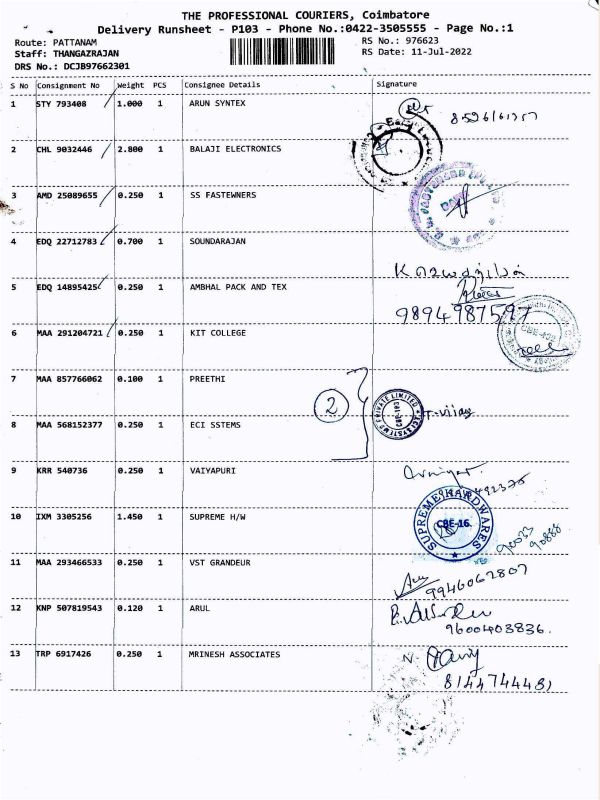 THE PROFESSIONAL COURIERS, Coimbatore
Delivery Runsheet - P103 - Phone No.:0422-3505555 - Page No.:1
Route: PATTANAM RS No.: 976623
Staff: THANGAZRAJAN RS Date: 11-Jul-2022
DRS No.: DCJB97662301
S No Consignment No Weight PCS Consignee Details Signature
1 STY 793408 1.000 1 ARUN SYNTEX
2 CHL 9032446 2.800 1 BALAJI ELECTRONICS
3 AMD 25089655 0.250 1 SS FASTEWNERS
4 EDQ 22712783 0.700 1 SOUNDARAJAN
5 EDQ 14895425 0.250 1 AMBHAL PACK AND TEX
9894987597
6 MAA 291204721 0.250 1 KIT COLLEGE
CBE-402
7 MAA 857766062 0.100 1 PREETHI
2
PRIVATE LIMITED ECI SYSTEMS CBE-103
T-vijay
8 MAA 568152377 0.250 1 ECI SSTEMS
9 KRR 540736 0.250 1 VAIYAPURI
10 IXM 3305256 1.450 1 SUPREME H/W
SUPREME HARDWARES CBE-16.
90033
90888
11 MAA 293466533 0.250 1 VST GRANDEUR
9946062807
12 KNP 507819543 0.120 1 ARUL
9600403836.
13 TRP 6917426 0.250 1 MRINESH ASSOCIATES
8144744431